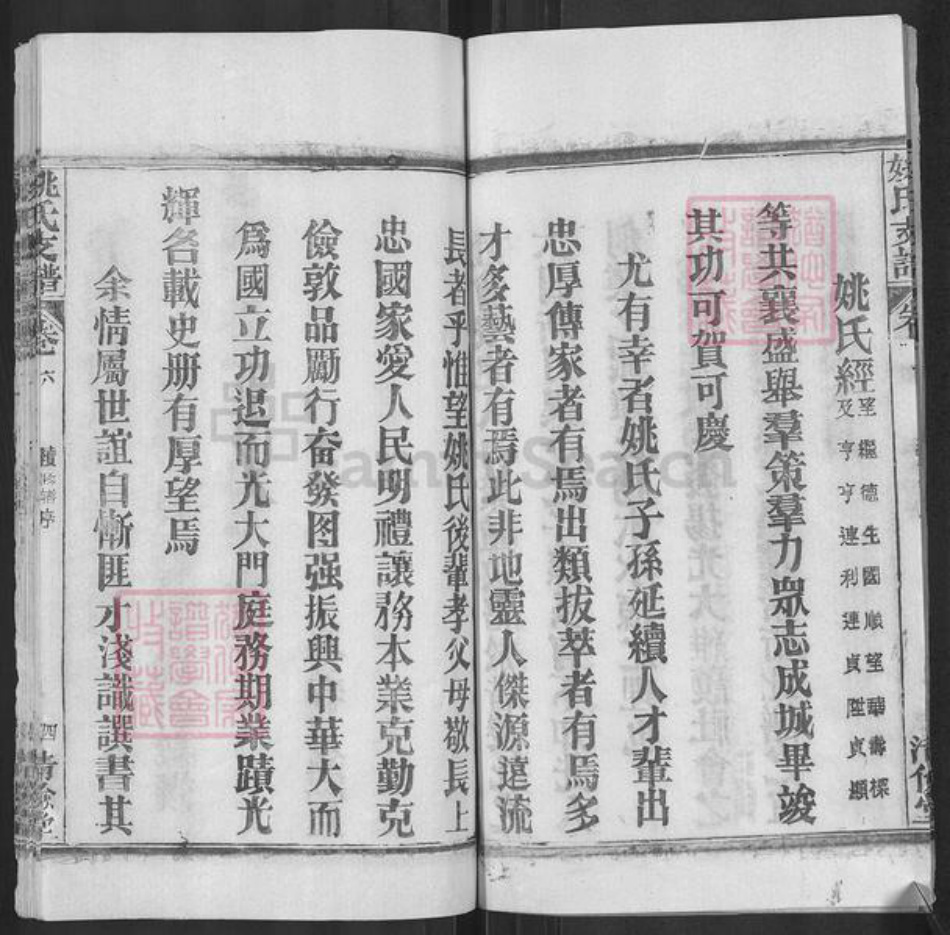 姚氏支譜
姚氏經
至繼德生國順望華壽標
及亨亨連利連貞陞貞顯
等共襄盛舉羣策羣力眾志成城畢竣
其功可賀可慶
尤有幸者姚氏子孫延續人才輩出
忠厚傳家者有焉出類拔萃者有焉多
才多藝者有焉此非地靈人傑源遠流
長者乎惟望姚氏後輩孝父母敬長上
忠國家愛人民明禮讓務本業克勤克
儉敦品勵行奋發图强振興中華大而
爲國立功退而光大門庭務期業蹟光
輝名載史册有厚望焉
余情屬世誼自慚匪才淺識譔書其
姚氏支譜
六
四